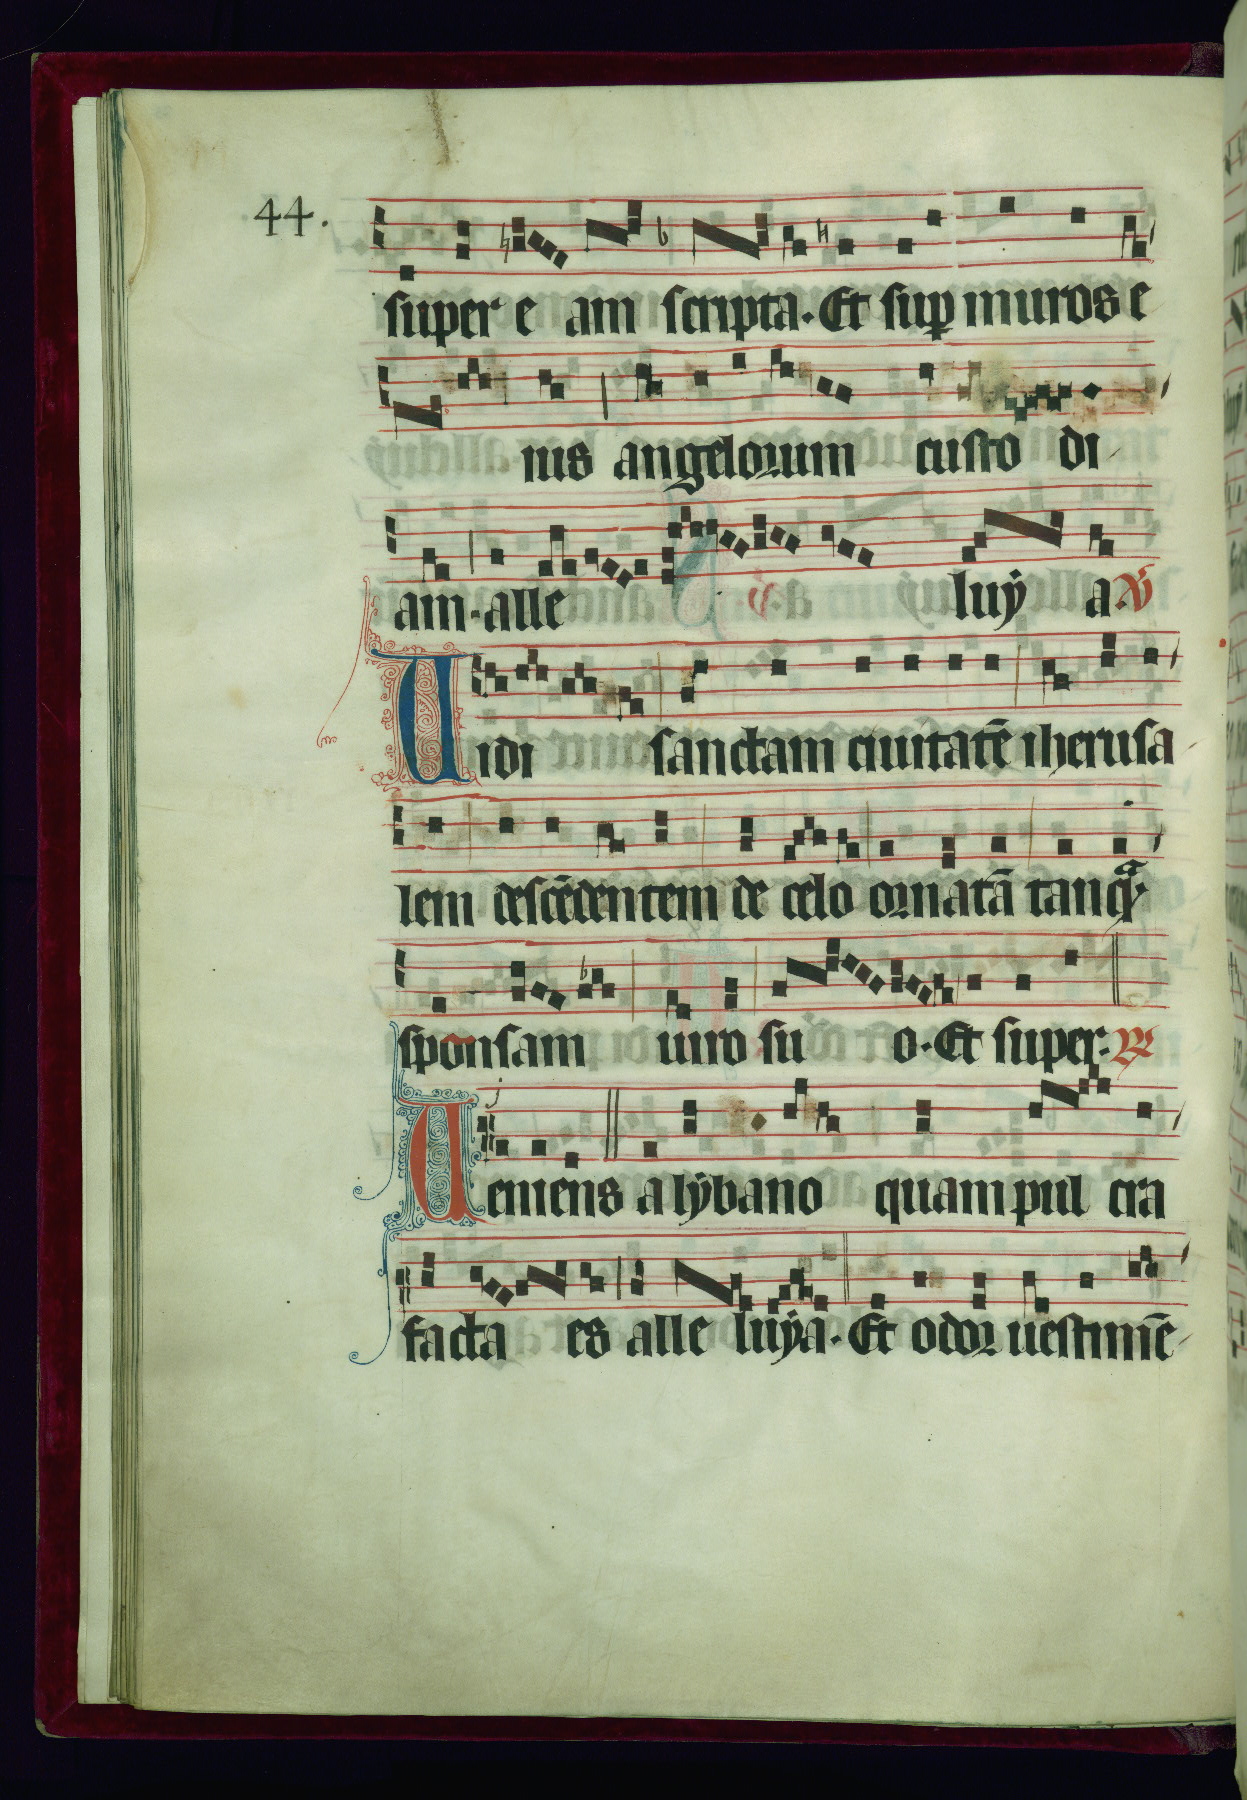 44.
super e am scripta. Et sup muros e
ius angelorum custo di
am. alle luẏ a. ℣
Uidi sanctam ciuitatē iherusa
lem descēdentem de celo ornatā tanqᷓ
sponsam uiro su o. Et super. ℟
Ueniens a lẏbano quam pul cra
facta es alle luẏa. Et odor uestimē